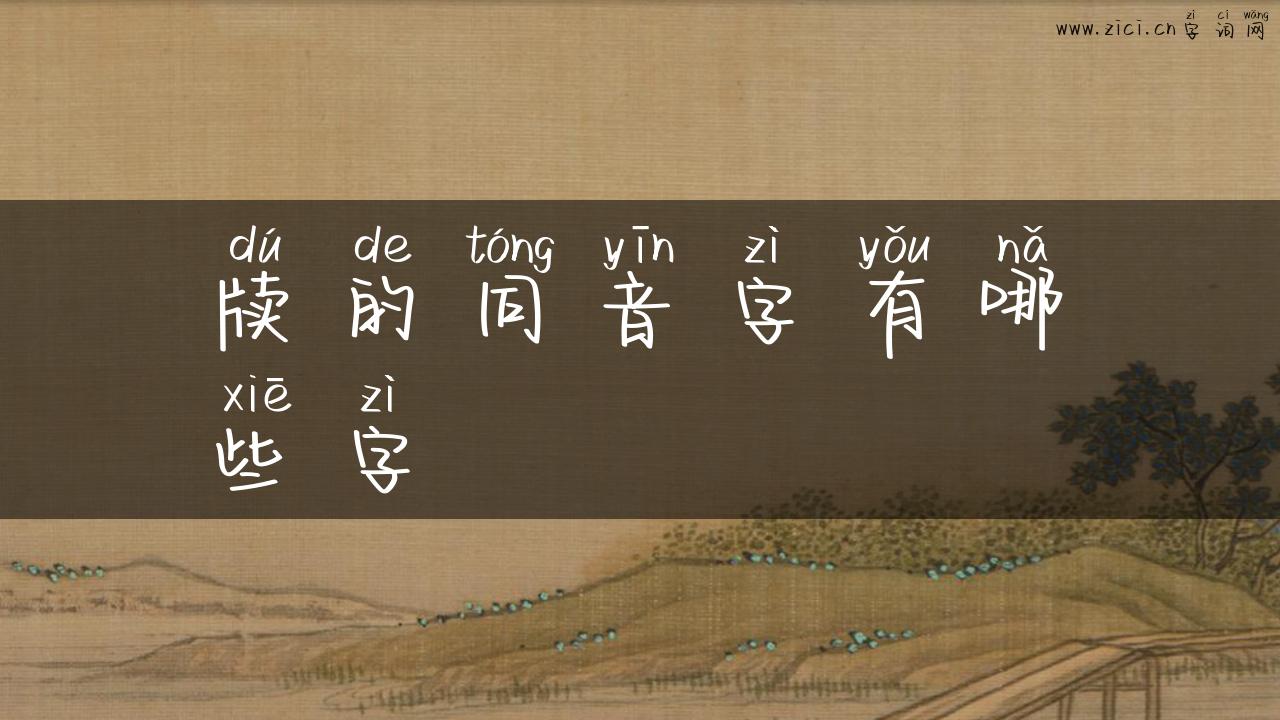 zì cí wǎng
www.zici.cn字词网
dú de tóng yīn zì yǒu nǎ
牍的同音字有哪
xiē zì
些字